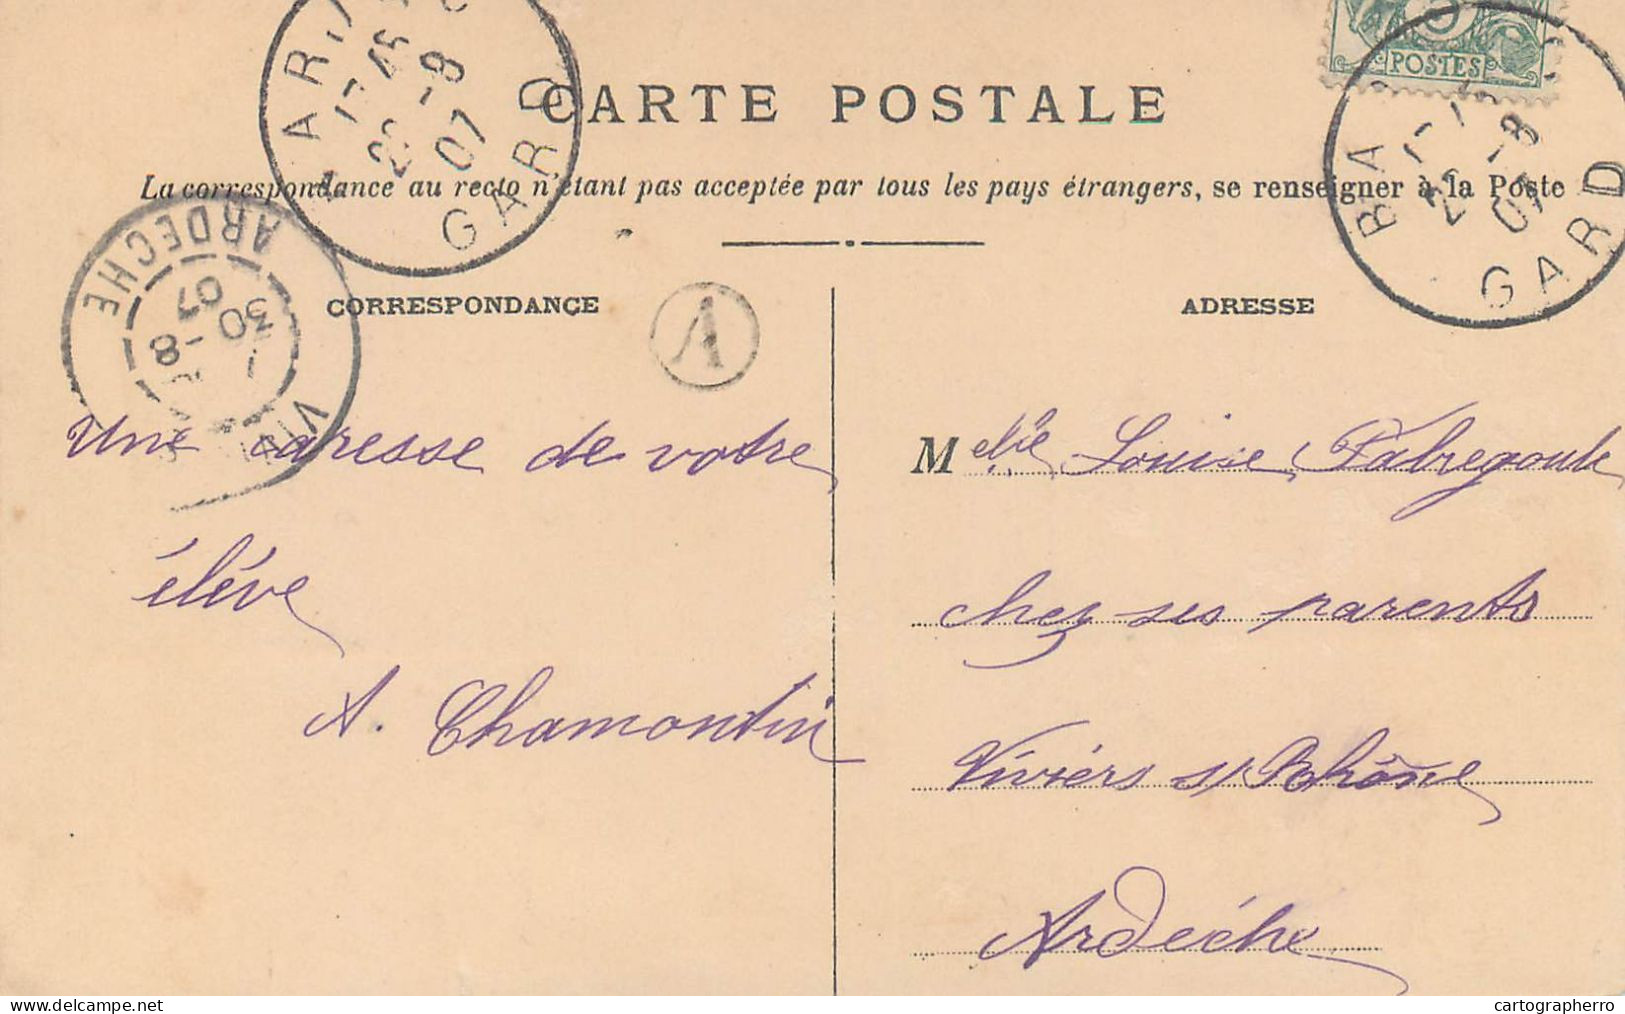 BARJA
17 45
29 -8
07
GARD
POSTES
BA
29 -8
07
GARD
CARTE POSTALE
La correspondance au recto n'étant pas acceptée par tous les pays étrangers, se renseigner à la Poste
ARDECHE
30 -8
07
VIVI
CORRESPONDANCE
A
ADRESSE
Une caresse de votre
élève
A. Chamontin
Melle Louise Fabregoule
chez ses parents
Viviers s/Rhône
Ardèche
www.delcampe.net
cartographerro